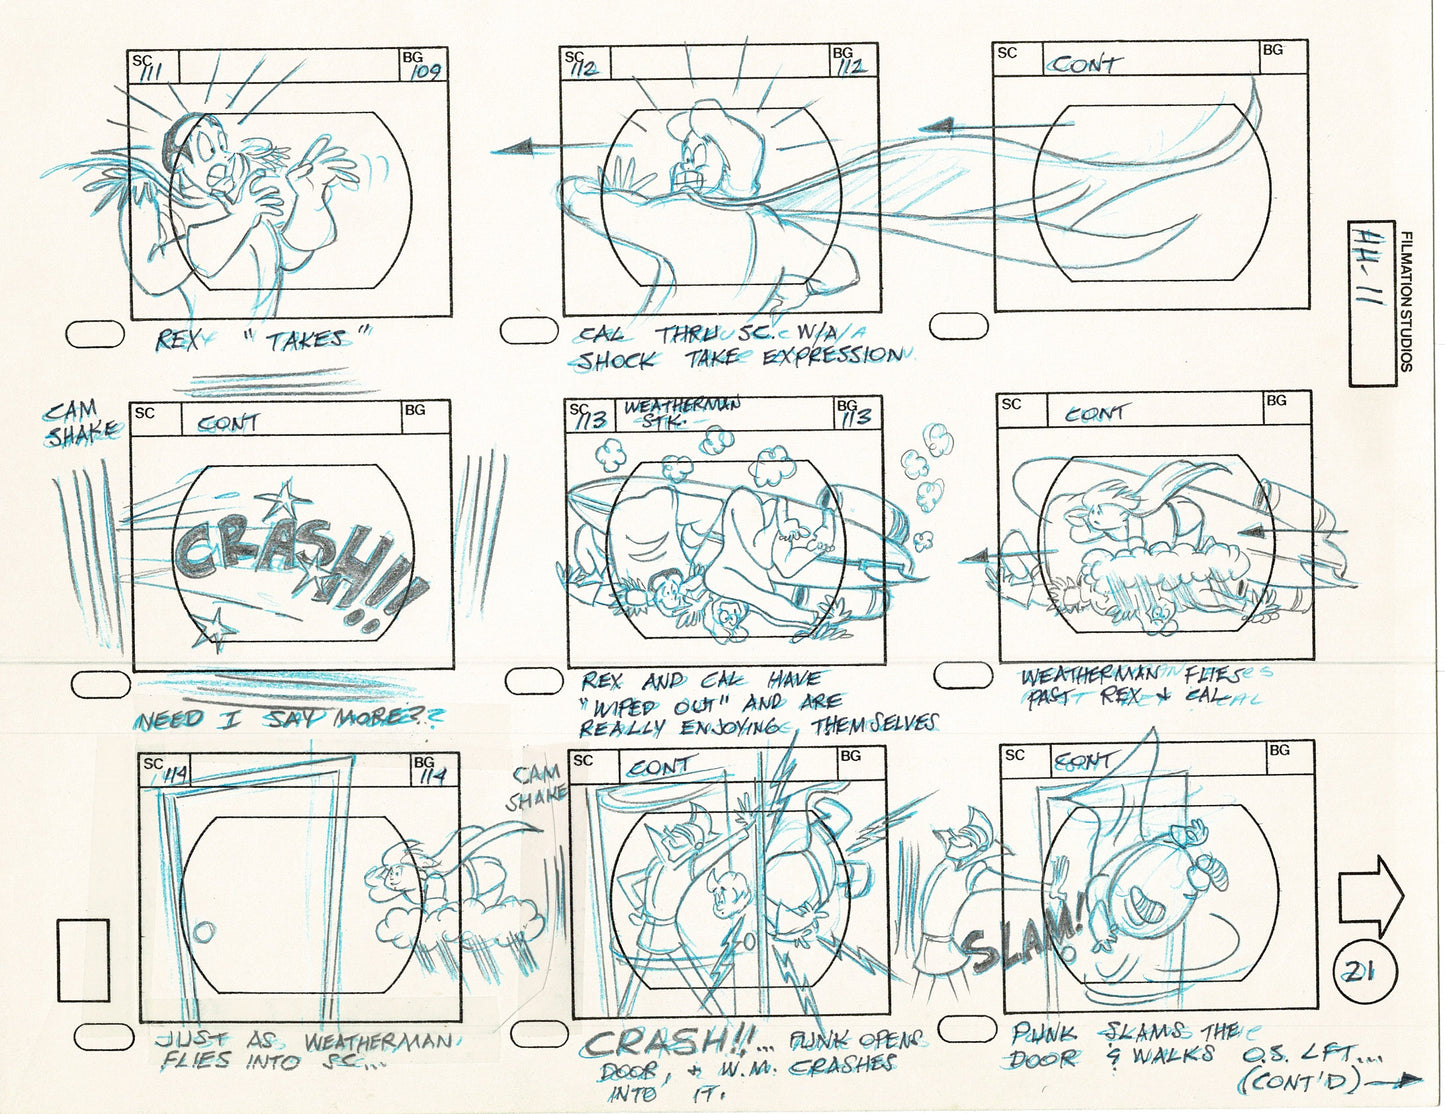 SC
111
BG
109
REX "TAKES"
SC
112
BG
112
CAL THRU SC. W/A
SHOCK TAKE EXPRESSION.
SC
CONT
BG
FILMATION STUDIOS
HH-11
CAM
SHAKE
SC
CONT
BG
CRASH!!!
NEED I SAY MORE??
SC
113
WEATHERMAN
STK.
BG
113
REX AND CAL HAVE
"WIPED OUT" AND ARE
REALLY ENJOYING THEMSELVES
SC
CONT
BG
WEATHERMAN FLIES
PAST REX & CAL
SC
114
BG
114
JUST AS WEATHERMAN
FLIES INTO SC...
CAM
SHAKE
SC
CONT
BG
CRASH!!... PUNK OPENS
DOOR, & W.M. CRASHES
INTO IT.
SC
CONT
BG
SLAM!
PUNK SLAMS THE
DOOR & WALKS O.S. LFT...
(CONT'D)
21